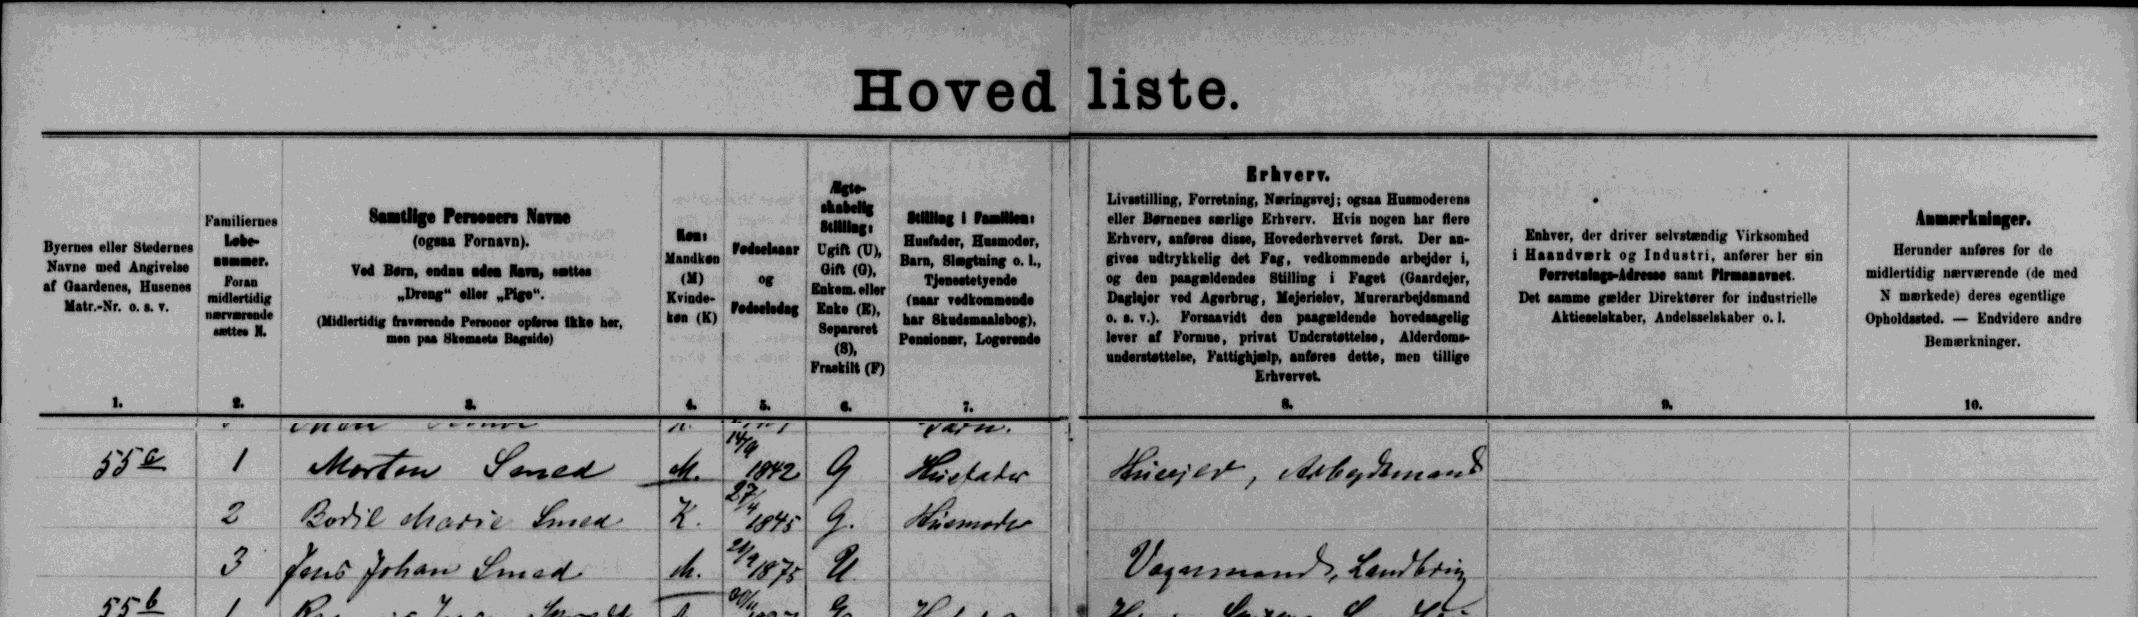 Hovedliste.
Byernes eller Stedernes
Navne med Angivelse
af Gaardenes, Husenes
Matr.-Nr. o. s. v.
1.
Familiernes
Løbe-
nummer.
Foran
midlertidig
nærværende
sættes N.
2.
Samtlige Personers Navne
(ogsaa Fornavn).
Ved Børn, endnu uden Navn, sættes
„Dreng“ eller „Pige“.
(Midlertidig fraværende Personer opføres ikke her,
men paa Skemaets Bagside)
3.
Køn:
Mandkøn
(M)
Kvinde-
køn (K)
4.
Fødselsaar
og
Fødselsdag
5.
Ægte-
skabelig
Stilling:
Ugift (U),
Gift (G),
Enkem. eller
Enke (E),
Separeret
(S),
Fraskilt (F)
6.
Stilling i Familien:
Husfader, Husmoder,
Barn, Slægtning o. l.,
Tjenestetyende
(naar vedkommende
har Skudsmaalsbog),
Pensionær, Logerende
7.
Erhverv.
Livsstilling, Forretning, Næringsvej; ogsaa Husmoderens
eller Børnenes særlige Erhverv. Hvis nogen har flere
Erhverv, anføres disse, Hovederhvervet først. Der an-
gives udtrykkelig det Fag, vedkommende arbejder i,
og den paagældendes Stilling i Faget (Gaardejer,
Daglejer ved Agerbrug, Mejerielev, Murerarbejdsmand
o. s. v.). Forsaavidt den paagældende hovedsagelig
lever af Formue, privat Understøttelse, Alderdoms-
understøttelse, Fattighjælp, anføres dette, men tillige
Erhvervet.
8.
Enhver, der driver selvstændig Virksomhed
i Haandværk og Industri, anfører her sin
Forretnings-Adresse samt Firmanavnet.
Det samme gælder Direktører for industrielle
Aktieselskaber, Andelsselskaber o. l.
9.
Anmærkninger.
Herunder anføres for de
midlertidig nærværende (de med
N mærkede) deres egentlige
Opholdssted. — Endvidere andre
Bemærkninger.
10.
Barn.
55a 1 Morten Smed M. 1842 G Husfader Husejer, Arbejdsmand
2 Bodil Marie Smed K. 27/4 1845 G. Husmoder
3 Jens Johan Smed M. 1875 U Vognmand, Landbrug
55b 1